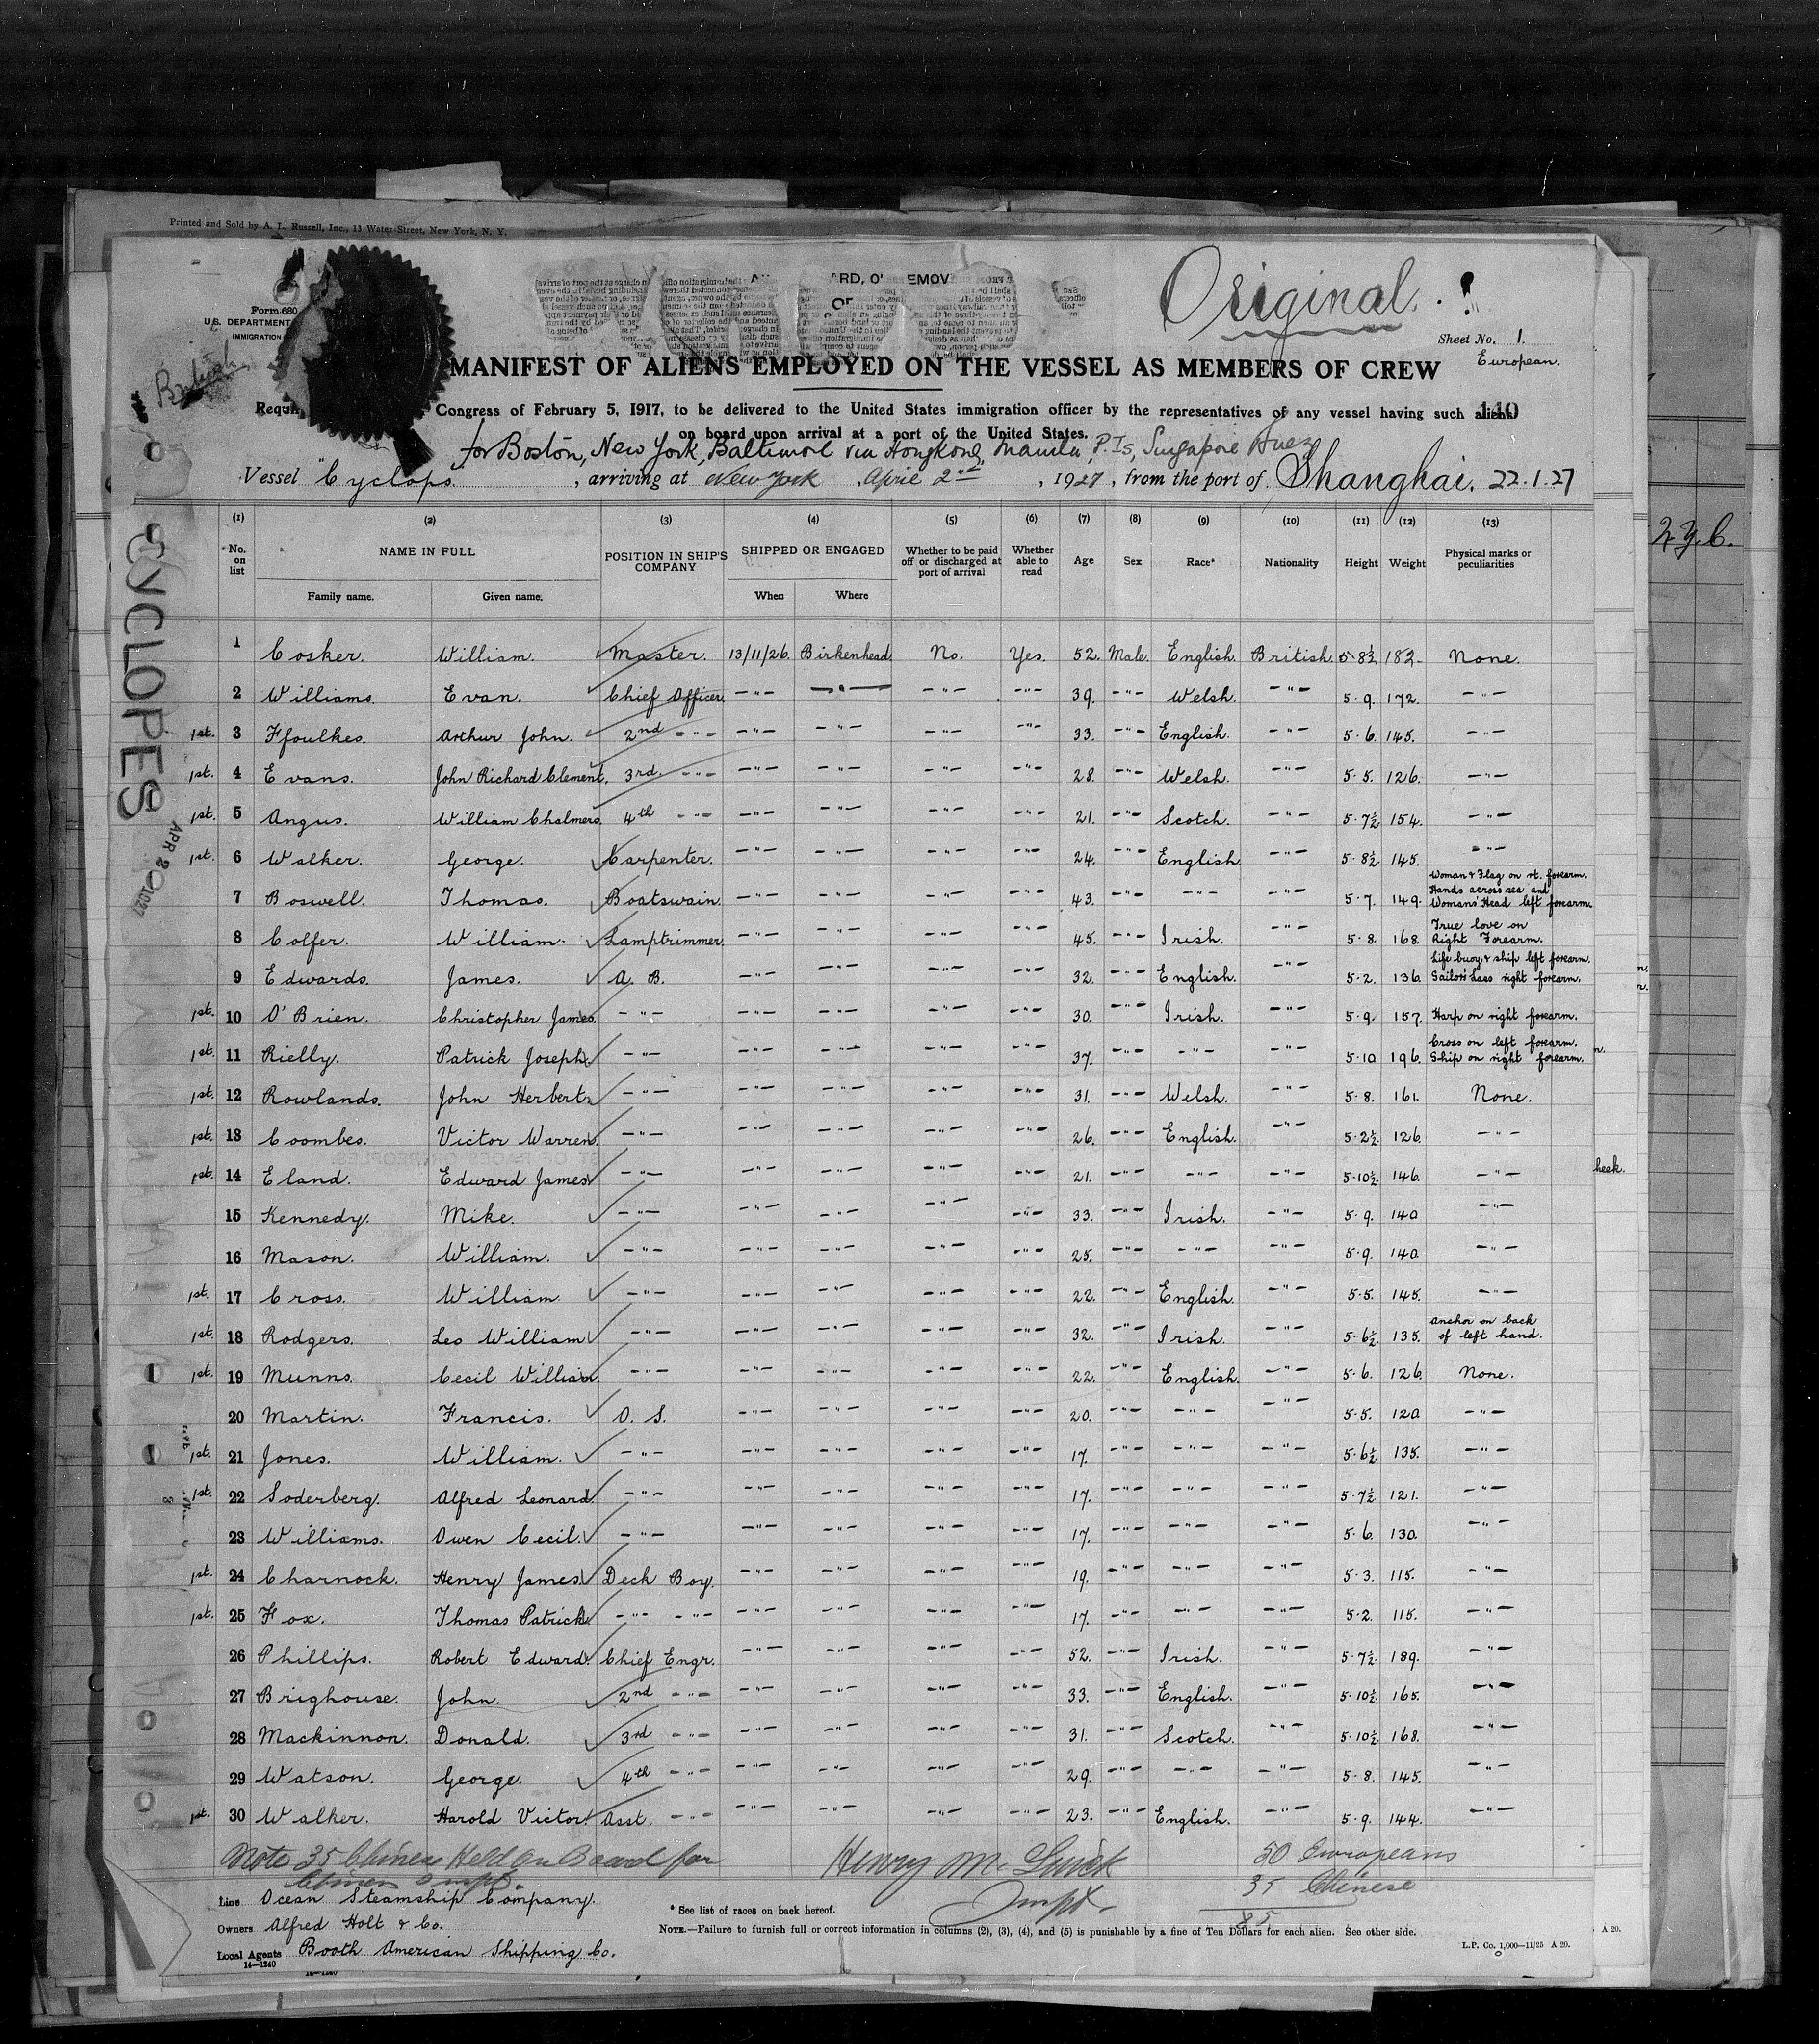 Printed and Sold by A. L. Russell, Inc., 13 Water Street, New York, N. Y.
Original.
Form 680
U.S. DEPARTMENT
IMMIGRATION
British
ARD, O' EMOV
Sheet No. 1.
European.
MANIFEST OF ALIENS EMPLOYED ON THE VESSEL AS MEMBERS OF CREW
Congress of February 5, 1917, to be delivered to the United States immigration officer by the representatives of any vessel having such aliens
on board upon arrival at a port of the United States.
for Boston, New York, Baltimore via Hongkong, Manila, P.Is, Singapore Suez
Vessel "Cyclops" , arriving at New York April 2nd , 1927 , from the port of Shanghai. 22.1.27
2 y.b.
CYCLOPES
APR 2 1927
(1) (2) (3) (4) (5) (6) (7) (8) (9) (10) (11) (12) (13)
No. on list NAME IN FULL POSITION IN SHIP'S COMPANY SHIPPED OR ENGAGED Whether to be paid off or discharged at port of arrival Whether able to read Age Sex Race* Nationality Height Weight Physical marks or peculiarities
Family name. Given name. When Where
1 Cosker. William. Master. 13/11/26. Birkenhead. No. Yes. 52. Male. English. British. 5-8½ 182. None.
2 Williams. Evan. Chief Officer. -"- -"- -"- -"- 39. -"- Welsh. -"- 5-9. 172. -"-
1st. 3 Ffoulkes. Arthur John. 2nd -"- -"- -"- -"- -"- 33. -"- English. -"- 5-6. 145. -"-
1st. 4 Evans. John Richard Clement. 3rd. -"- -"- -"- -"- -"- 28. -"- Welsh. -"- 5-5. 126. -"-
1st. 5 Angus. William Chalmers. 4th -"- -"- -"- -"- -"- 21. -"- Scotch. -"- 5-7½ 154. -"-
1st. 6 Walker. George. Carpenter. -"- -"- -"- -"- 24. -"- English. -"- 5-8½ 145. -"-
7 Boswell. Thomas. Boatswain. -"- -"- -"- -"- 43. -"- -"- -"- 5-7. 149. Woman & Flag on rt. forearm. Hands across sea and Womans' Head left forearm.
8 Colfer. William. Lamptrimmer. -"- -"- -"- -"- 45. -"- Irish. -"- 5-8. 168. True love on Right Forearm.
9 Edwards. James. A. B. -"- -"- -"- -"- 32. -"- English. -"- 5-2. 136. Life buoy & ship left forearm. Sailors Lass right forearm.
1st. 10 O'Brien. Christopher James. -"- -"- -"- -"- -"- 30. -"- Irish. -"- 5-9. 157. Harp on right forearm.
1st. 11 Rielly. Patrick Joseph. -"- -"- -"- -"- -"- 37. -"- -"- -"- 5-10 196. Cross on left forearm. Ship on right forearm.
1st. 12 Rowlands. John Herbert. -"- -"- -"- -"- -"- 31. -"- Welsh. -"- 5-8. 161. None.
1st. 13 Coombes. Victor Warren. -"- -"- -"- -"- -"- 26. -"- English. -"- 5-2½. 126. -"-
1st. 14 Eland. Edward James -"- -"- -"- -"- -"- 21. -"- -"- -"- 5-10½. 146. -"-
heek.
15 Kennedy. Mike. -"- -"- -"- -"- -"- 33. -"- Irish. -"- 5-9. 140 -"-
16 Mason. William. -"- -"- -"- -"- -"- 25. -"- -"- -"- 5-9. 140. -"-
1st. 17 Cross. William. -"- -"- -"- -"- -"- 22. -"- English. -"- 5-5. 145. -"-
1st. 18 Rodgers. Leo William -"- -"- -"- -"- -"- 32. -"- Irish. -"- 5-6½ 135. anchor on back of left hand.
1st. 19 Munns. Cecil William. -"- -"- -"- -"- -"- 22. -"- English. -"- 5-6. 126. None.
20 Martin. Francis. O. S. -"- -"- -"- -"- 20. -"- -"- -"- 5-5. 120. -"-
1st. 21 Jones. William. -"- -"- -"- -"- -"- 17. -"- -"- -"- 5-6½ 135. -"-
1st. 22 Soderberg. Alfred Leonard. -"- -"- -"- -"- -"- 17. -"- -"- -"- 5-7½ 121. -"-
23 Williams. Owen Cecil. -"- -"- -"- -"- -"- 17. -"- -"- -"- 5-6. 130. -"-
1st. 24 Charnock. Henry James. Deck Boy. -"- -"- -"- -"- 19. -"- -"- -"- 5-3. 115. -"-
1st. 25 Fox. Thomas Patrick. -"- -"- -"- -"- -"- -"- 17. -"- -"- -"- 5-2. 115. -"-
26 Phillips. Robert Edward. Chief Engr. -"- -"- -"- -"- 52. -"- Irish. -"- 5-7½. 189. -"-
27 Brighouse. John. 2nd -"- -"- -"- -"- -"- 33. -"- English. -"- 5-10½. 165. -"-
28 Mackinnon. Donald. 3rd -"- -"- -"- -"- -"- 31. -"- Scotch. -"- 5-10½. 168. -"-
29 Watson. George. 4th -"- -"- -"- -"- -"- 29. -"- -"- -"- 5-8. 145. -"-
1st. 30 Walker. Harold Victor. Asst. -"- -"- -"- -"- -"- 23. -"- English. -"- 5-9. 144. -"-
Note 35 Chinese Held on Board for
Chinese Inspt.
Henry M. Guick
Inspt.
50 Europeans
35 Chinese
85
Line Ocean Steamship Company.
* See list of races on back hereof.
Owners Alfred Holt & Co.
NOTE.—Failure to furnish full or correct information in columns (2), (3), (4), and (5) is punishable by a fine of Ten Dollars for each alien. See other side.
A 20.
Local Agents Booth American Shipping Co.
14—1240
L.P. Co. 1,000—11/25 A 20.